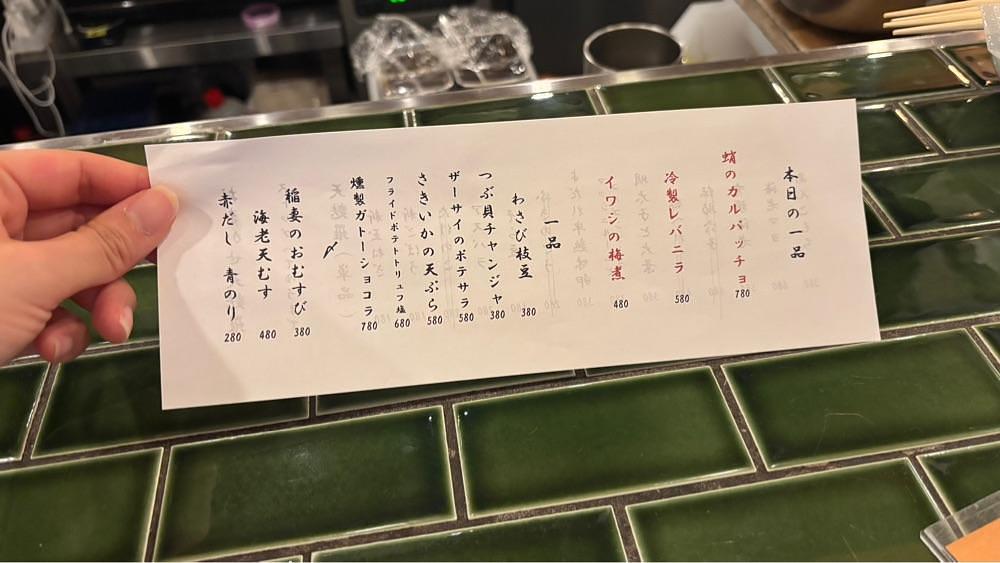 本日の一品
蛸のガルパッチョ
780
冷製レバニラ
580
イワシの梅煮
480
一品
わさび枝豆
380
つぶ貝チャンジャ
380
ザーサイのポテサラ
580
さきいかの天ぷら
580
フライドポテトトリュフ塩
680
燻製ガトーショコラ
780
〆
稲妻のおむすび
380
海老天むす
480
赤だし 青のり
280